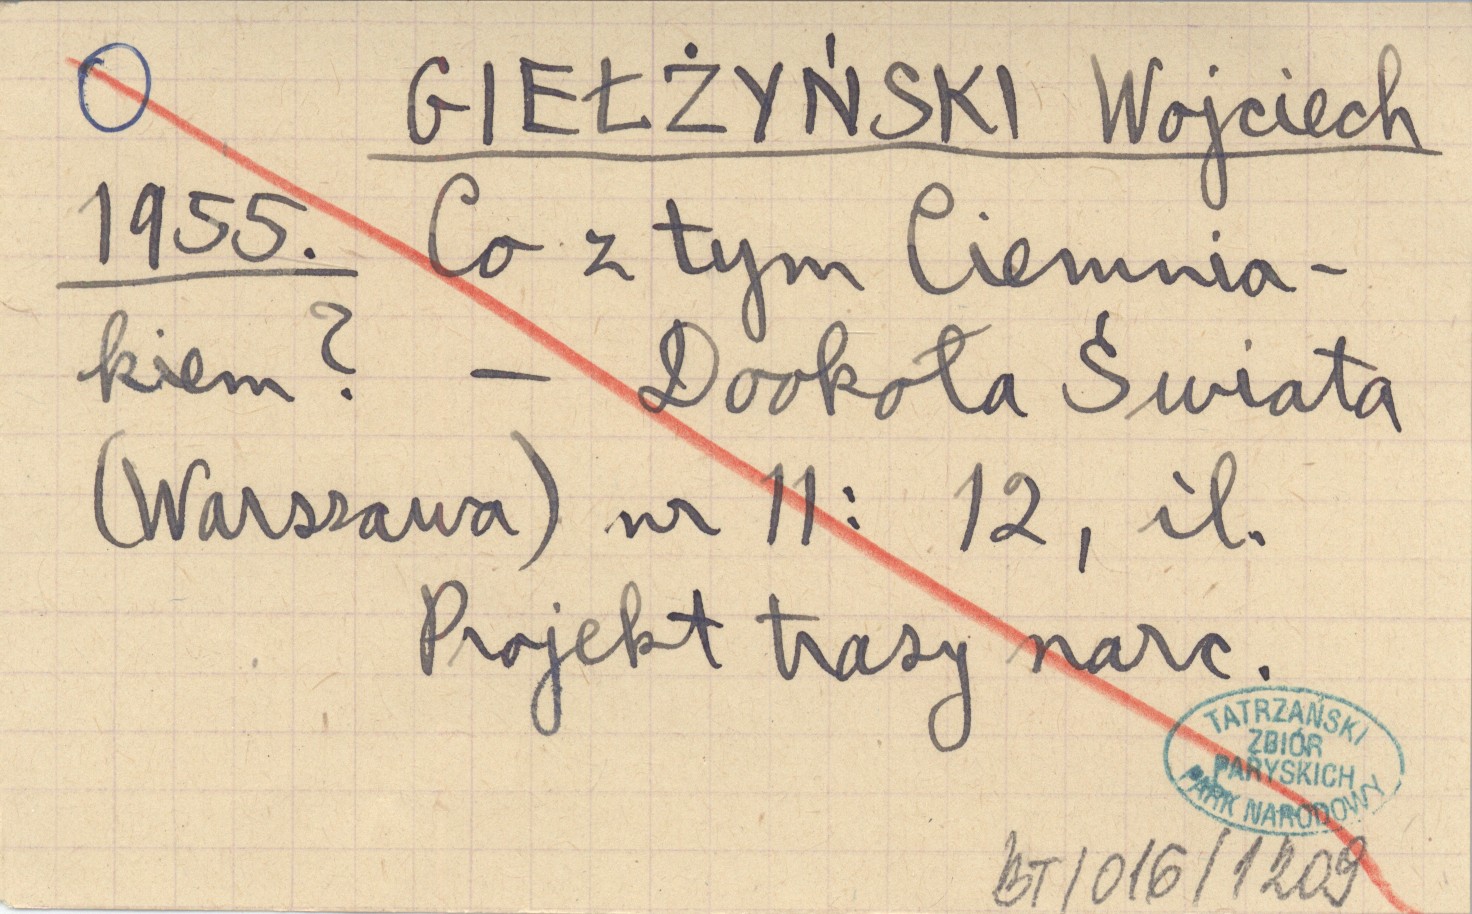 GIEŁŻYŃSKI Wojciech
1955. Co z tym Ciemnia-
kiem? — Dookoła Świata
(Warszawa) nr 11: 12, il.
Projekt trasy narc.
TATRZAŃSKI
ZBIÓR
PARYSKICH
PARK NARODOWY
BT/016/1209